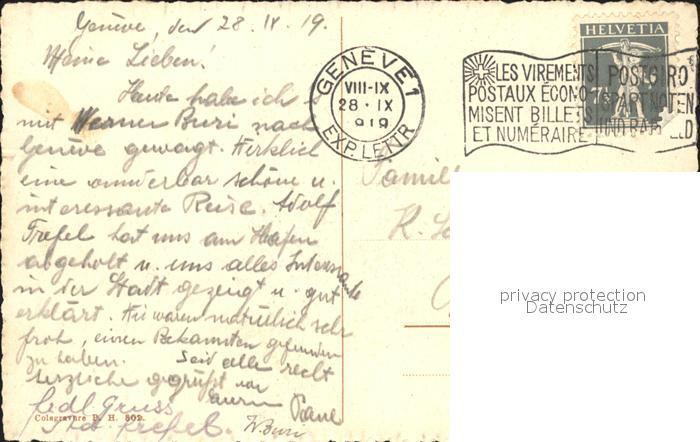 Genève, den 28. IX. 19.
Meine Lieben!
Heute habe ich
mit Werner Buri nach
Genève gewagt. Wirklich
eine wunderbar schöne u.
interessante Reise. Adolf
Trefel hat uns am Hafen
abgeholt u. uns alles Interessante
in der Stadt gezeigt u. gut
erklärt. Wir waren natürlich sehr
froh, einen Bekannten gefunden
zu haben. Seid alle recht
herzliche gegrüßt von
eurem Paul
fedl Gruss
Ad. Trefel. W. Buri
Cologravure P. H. 802.
GENÈVE 1
VIII-IX
28 · IX
919
EXP. LETTR
LES VIREMENTS
POSTAUX ÉCONO-
MISENT BILLETS
ET NUMÉRAIRE
POSTGIRO
SPART NOTEN
HELVETIA
7½
Famil
privacy protection
Datenschutz